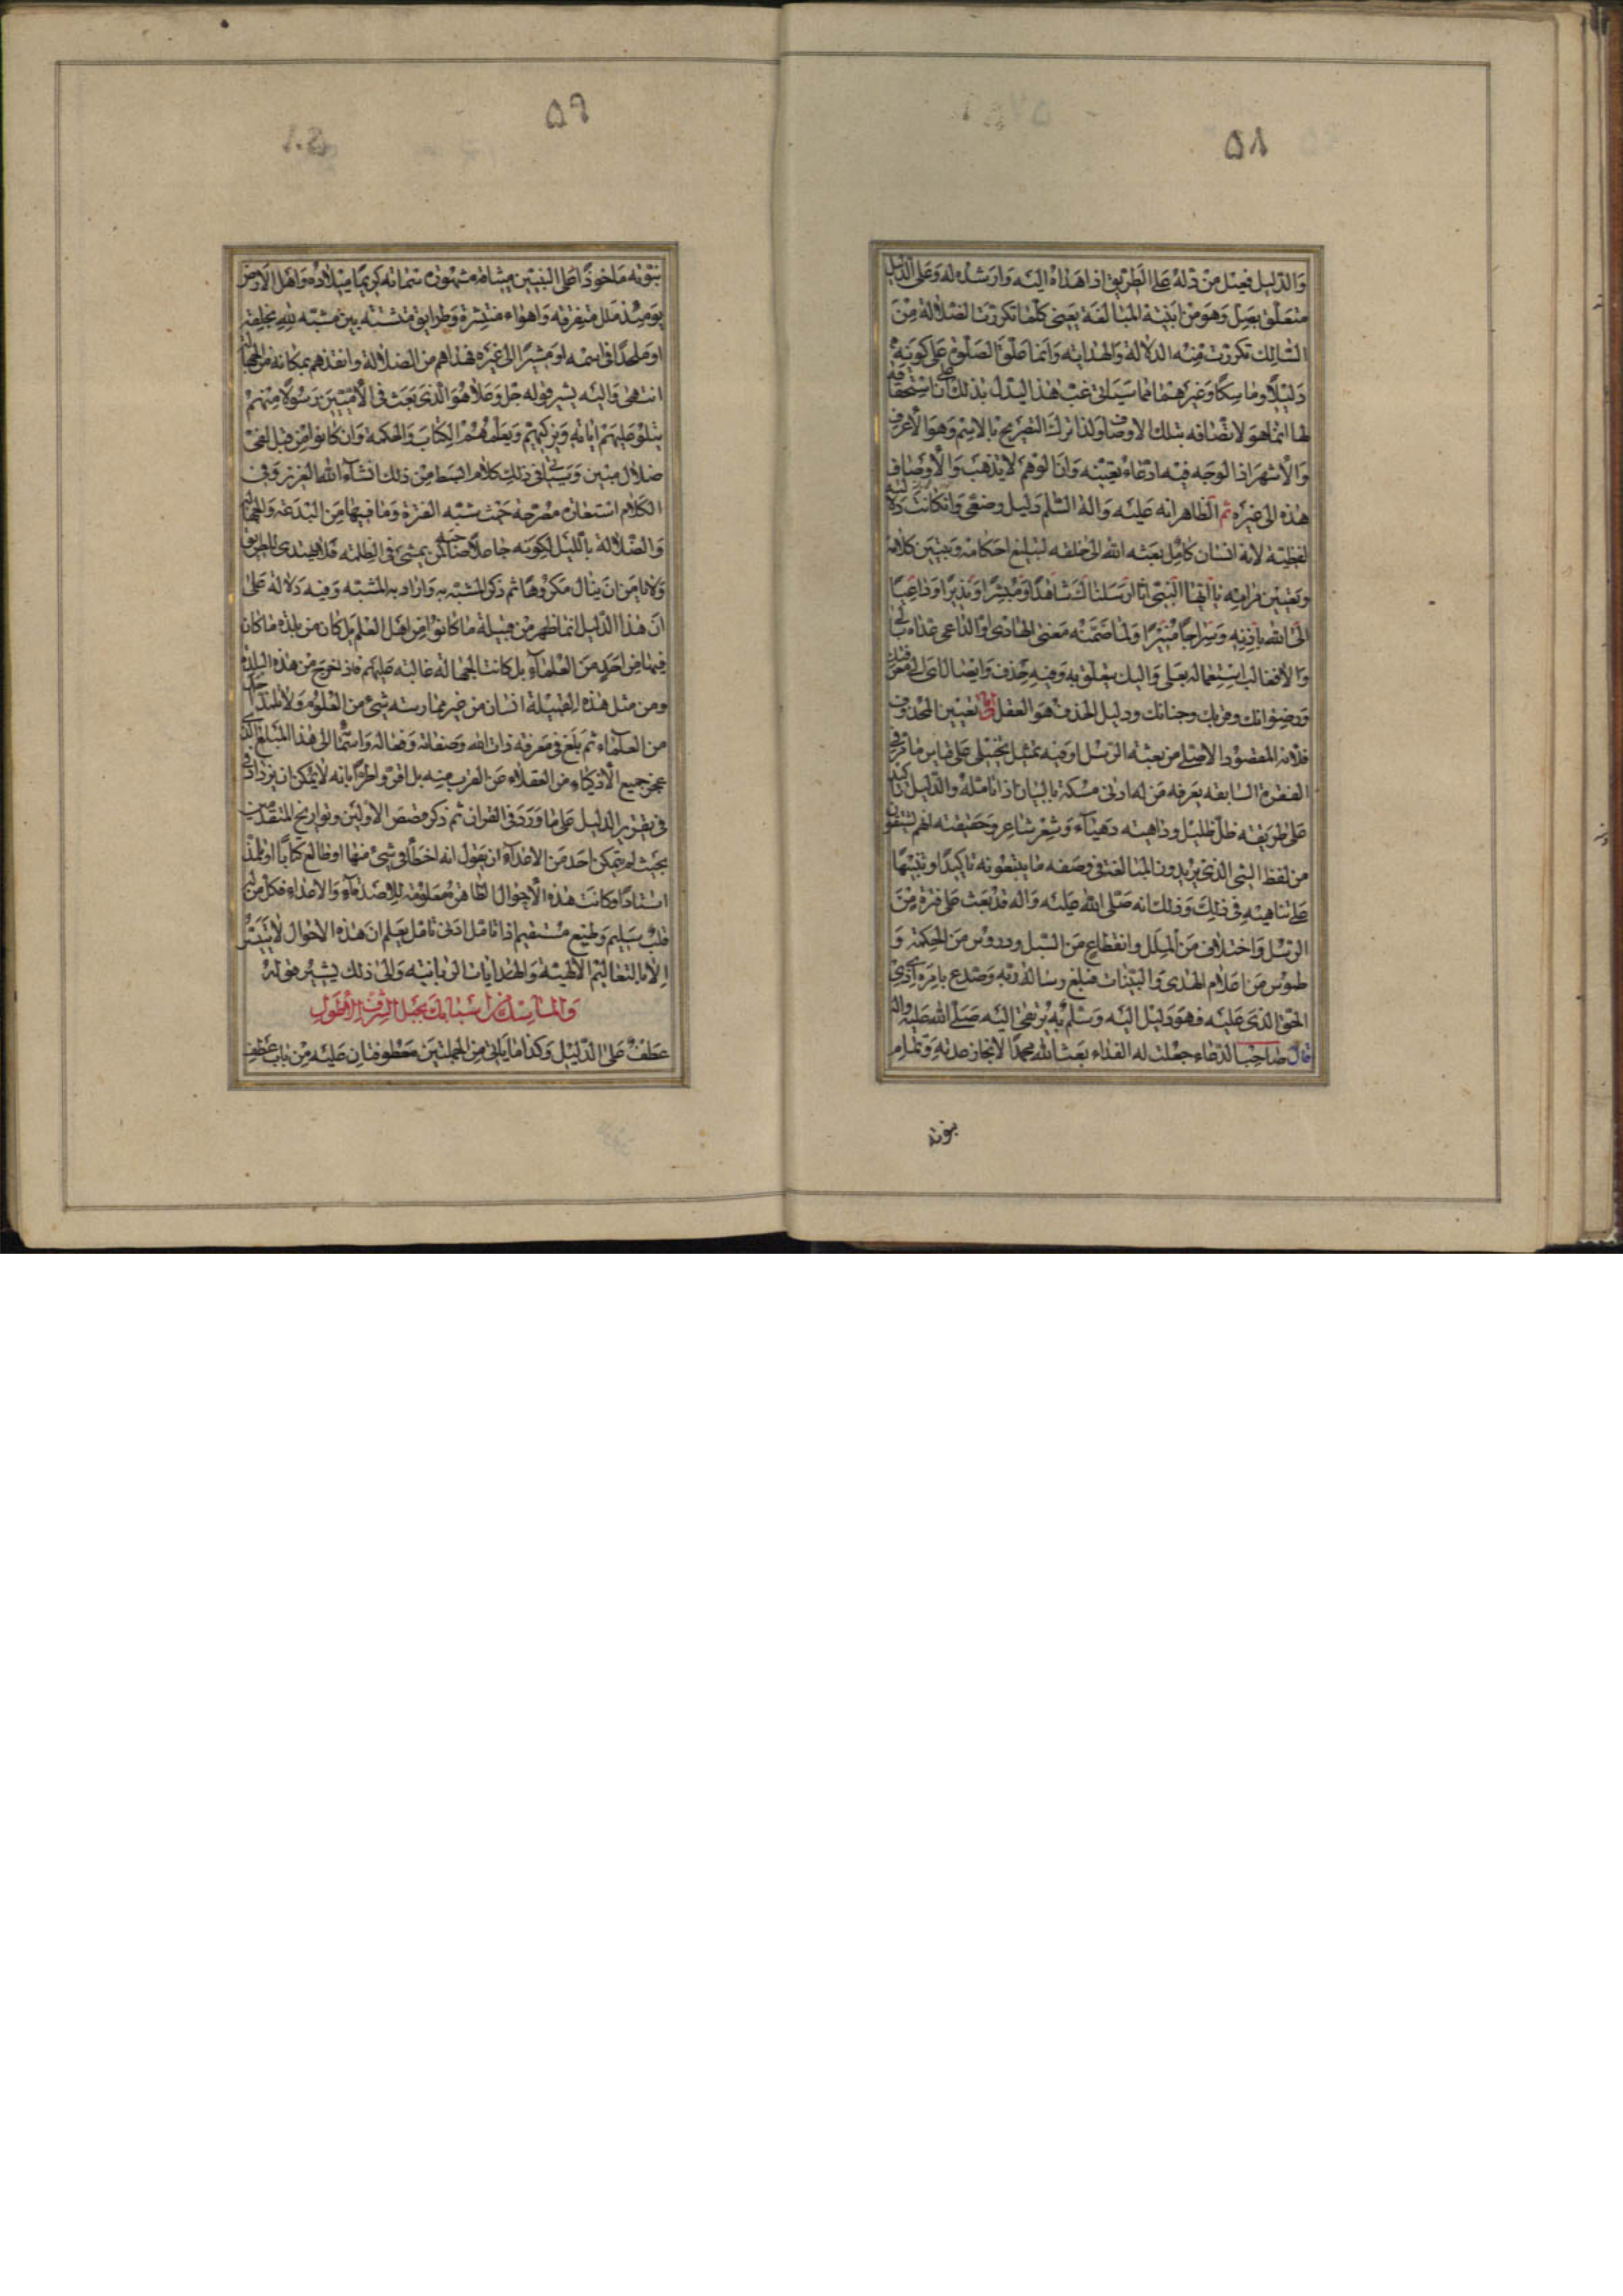 ٥٨
والدليل فعيل من دله على الطريق اذا هداه اليه وارشده له وعلى الدليل
متعلق بصل وهو من ابنية المبالغة يعني كلما تكررت الضلالة من
السالك تكررت منه الدلالة والهداية وانما صلوة على كونه
دليلا وماسكا وغيرهما مما سيأتي غب هذا ليدل بذلك على ان استحقاقه
لها انما هو لاتصافه بتلك الاوصاف ولذا ترك التصريح بالاسم وهو الاعرف
والاشهر اذ الوجه فيه ادعاء تعينه وان الوهم لا يذهب والاوصاف
هذه الى غيره ثم الظاهر انه عليه واله السلم دليل وضعي وان كانت دلالته
لفظية لانه انسان كامل بعثه الله الى خلقه لتبليغ احكامه وتبيين كلامه
وتعيين مرامه يا ايها النبي انا ارسلناك شاهدا ومبشرا ونذيرا وداعيا
الى الله باذنه وسراجا منيرا ولما ضمنه معنى الهادي او الداعي عداه بالى
والا فغالب استعماله بعلى واليك يتعلق به وفيه حذف وايصال اي الى
ورضوانك وقربك وجنانك ودليل الحذف هو العقل تعيين المحذوف
فلانه المقصود الاصلي من بعثه الرسل اوفيه تمثيل تخييلي على قياس ما مر في
الفقرة السابقه يعرفه من له ادنى مسكة بالبيان اذا تأمله والدليل تاكيد
على طريقه ظل ظليل وداهيه دهياء وشعر شاعر وحقيقته انهم يشتقون
من لفظ الشيء الذي يريدون المبالغة في وصفه ما يتبعونه تاكيدا وتنبيها
على تناهيه في ذلك وذلك انه صلى الله عليه واله قد بعث على فترة من
الرسل واختلاف من الملل وانقطاع من السبل ودروس من الحكمة و
طموس من اعلام الهدى والبينات فبلغ رسالة ربه وصدع بامره
الحق الذي عليه فهو دليل اليه وسلم به يرتقى اليه صلى الله عليه واله
قال صاحب الدعاء جعلت له الفداء بعث الله محمدا لانجاز عدته وتمام
بنوته
٥٩
نبوته ماخوذا على النبيين ميثاقه مشهورة سماته كريما ميلاده واهل الارض
يومئذ ملل متفرقه واهواء منتشرة وطرايق متشتته بين مشبه لله بخلقه
او ملحدا في اسمه او مشيرا الى غيره فهداهم من الضلالة وانقذهم بمكانه من الجهالة
انتهى واليه يشير قوله جل وعلا هو الذي بعث في الاميين رسولا منهم
يتلو عليهم اياته ويزكيهم ويعلمهم الكتاب والحكمة وان كانوا من قبل لفي
ضلال مبين وسيأتي في ذلك كلام ابسط من ذلك انشاء الله العزيز وفي
الكلام استعاره مصرحه حيث شبه الفترة وما فيها من البدعة والجهالة
والضلالة بالليل لكونه جاعلا صاحبه كمن يمشي في الظلمه فلا يهتدي الطريق
ولا يامن ان ينال مكروها ثم ذكر المشبه به واراد به المشبه وفيه دلالة على
ان هذا الدليل انما ظهر من قبيلة ما كانوا من اهل العلم بل كان من بلدة ما كان
فيها من احد من العلماء بل كانت الجهالة غالبه عليهم فاذ نخرج من هذه البلدة
ومن مثل هذه القبيلة انسان من غير ممارسته شيء من العلوم ولا تلمذ احد
من العلماء ثم بلغ في معرفة ذات الله وصفاته وفعاله واسمائه الى هذا المبلغ الذي
عجز جميع الاذكياء من العقلاء عن القرب منه بل اقر واطرا بانه لا يمكن ان يزداد
في تقرير الدليل على ما ورد في القران ثم ذكر قصص الاولين وتواريخ المتقدمين
بحيث لم يتمكن احد من الاعداء ان يقول انه اخطأ في شيء منها او طالع كتابا او تلمذ
استادا وكانت هذه الاحوال ظاهرة معلومة للاصدقاء والاعداء فكل من له
قلب سليم وطبع مستقيم اذا تأمل ادنى تأمل يعلم ان هذه الاحوال لا تتيسر
الا بالتعاليم الالهية والهدايات الربانية والى ذلك يشير قوله
والماسك من اسبابك بحبل الشرف الاطول
عطف على الدليل وكذا ما يأتي من الجملتين معطوفتان عليه من باب عطف